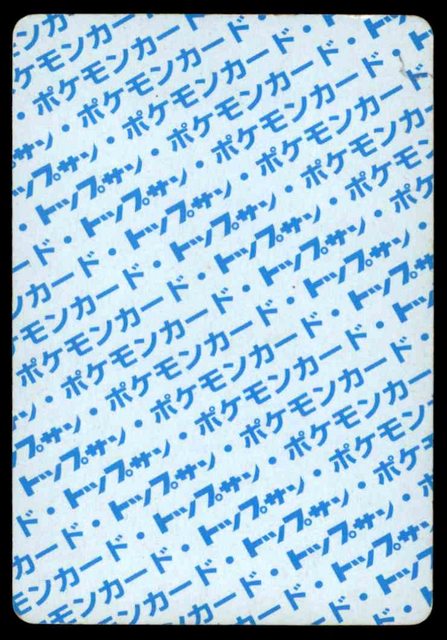 ンカード・
ケモンカード・
ポケモンカード・
サン・ポケモンカード・
トップサン・ポケモンカード・ト
・トップサン・ポケモンカード
ード・トップサン・ポケモンカー
ンカード・トップサン・ポケモン
モンカード・トップサン・ポケ
ポケモンカード・トップサン・
ン・ポケモンカード・トップサン
トップサン・ポケモンカード・トッ
・トップサン・ポケモンカード・
ド・トップサン・ポケモンカード
カード・トップサン・ポケモンカー
モンカード・トップサン・ポケモン
ケモンカード・トップサン・ポ
ポケモンカード・トップサン・
ポケモンカード・トップサン
ポケモンカード・トッ